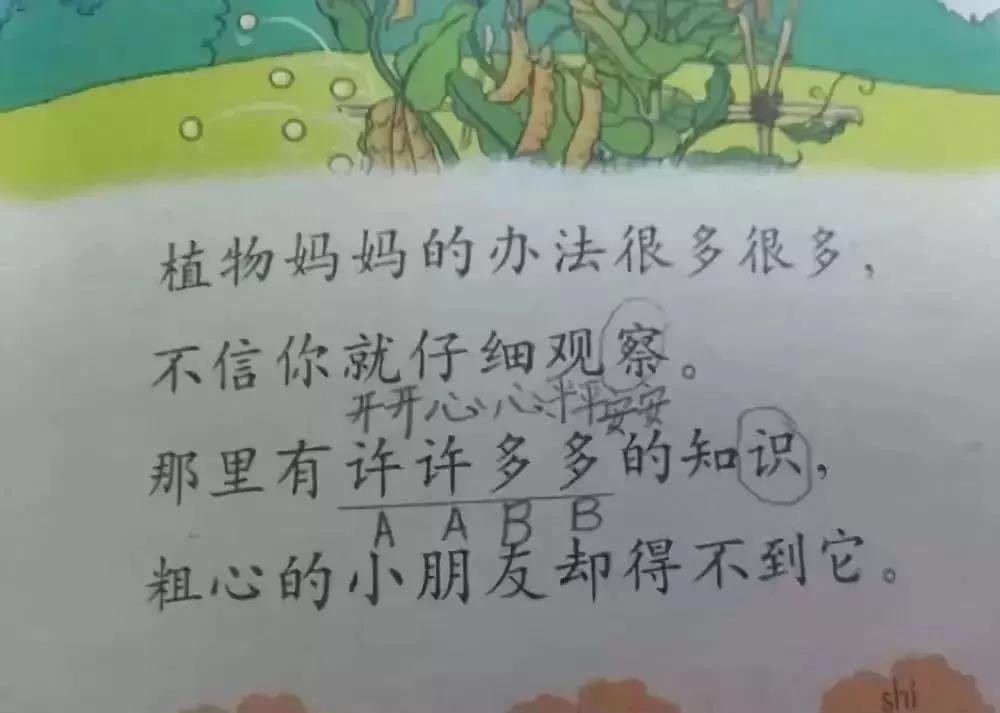 植物妈妈的办法很多很多，
不信你就仔细观察。
开开心心 平平安安
那里有许许多多的知识，
A A B B
粗心的小朋友却得不到它。
shi